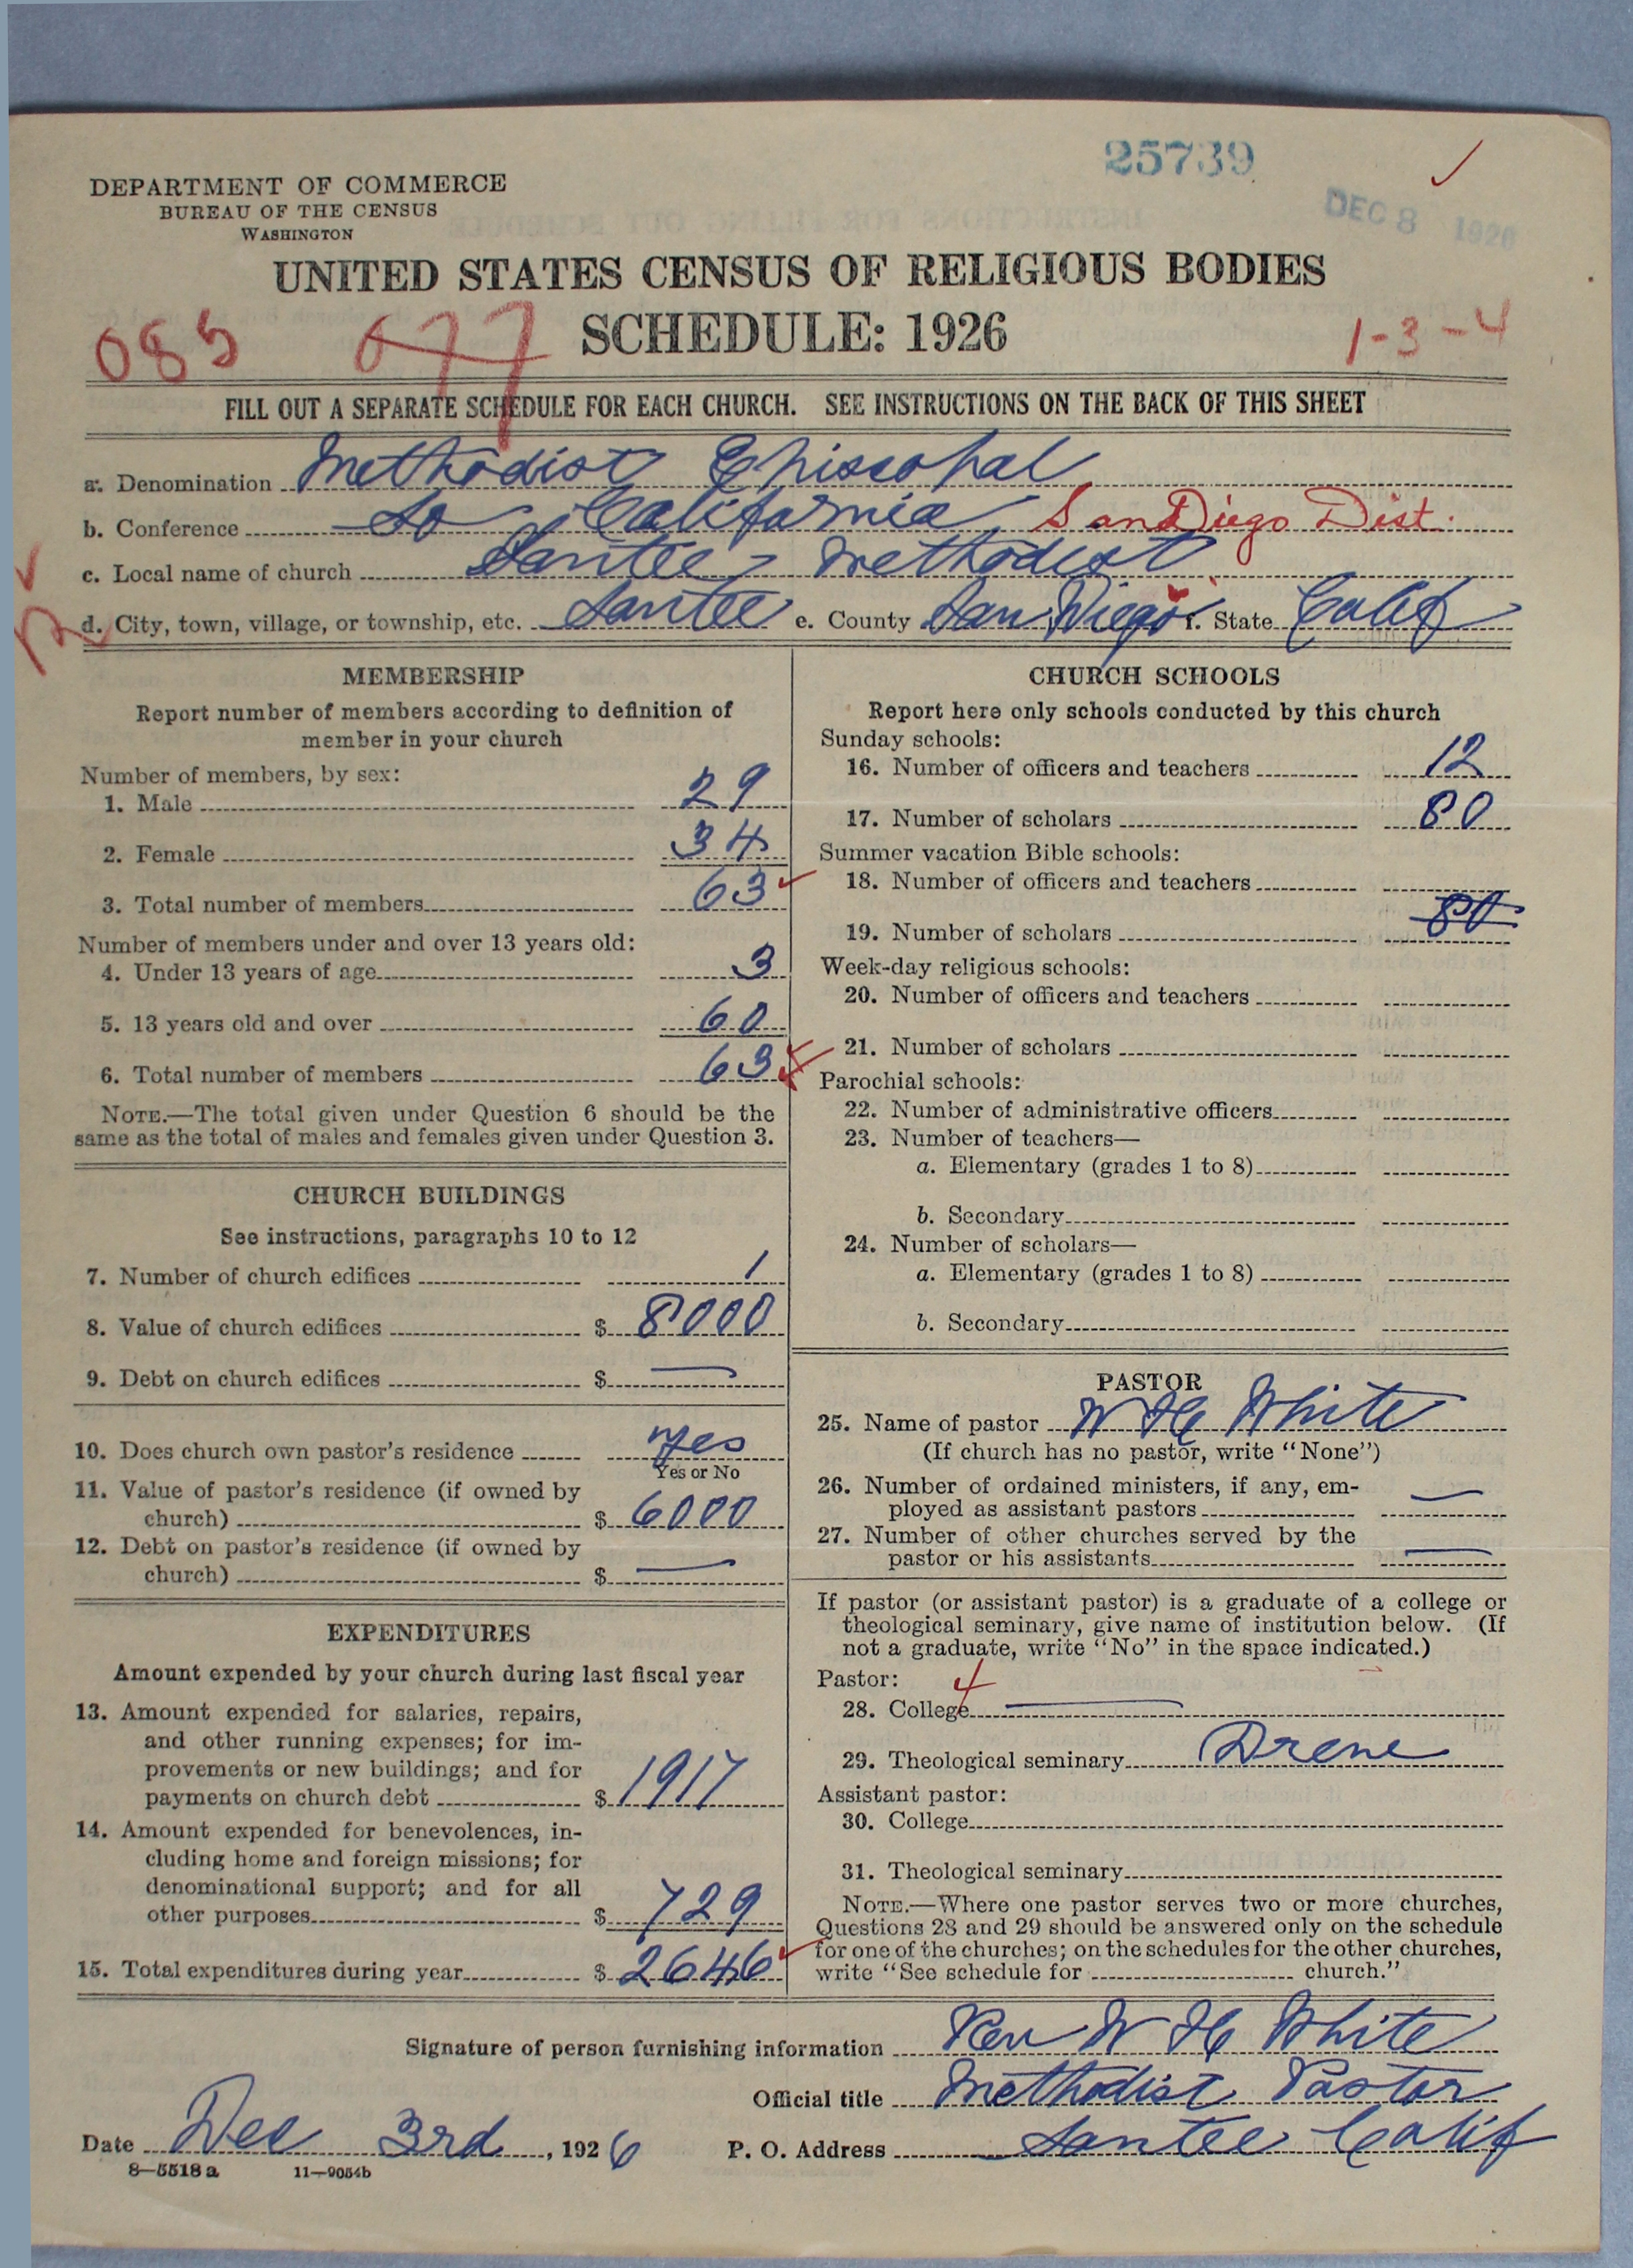 25739
DEC 8 1926
DEPARTMENT OF COMMERCE
BUREAU OF THE CENSUS
WASHINGTON
UNITED STATES CENSUS OF RELIGIOUS BODIES
SCHEDULE: 1926
085 077 1-3-4
FILL OUT A SEPARATE SCHEDULE FOR EACH CHURCH. SEE INSTRUCTIONS ON THE BACK OF THIS SHEET
a. Denomination Methodist Episcopal
b. Conference So California, San Diego Dist.
c. Local name of church Santee - Methodist
d. City, town, village, or township, etc. Santee e. County San Diego f. State Calif
MEMBERSHIP
Report number of members according to definition of
member in your church
Number of members, by sex:
1. Male 29
2. Female 34
3. Total number of members 63
Number of members under and over 13 years old:
4. Under 13 years of age 3
5. 13 years old and over 60
6. Total number of members 63
NOTE.—The total given under Question 6 should be the
same as the total of males and females given under Question 3.
CHURCH BUILDINGS
See instructions, paragraphs 10 to 12
7. Number of church edifices 1
8. Value of church edifices $ 8000
9. Debt on church edifices $ —
10. Does church own pastor's residence yes
Yes or No
11. Value of pastor's residence (if owned by
church) $ 6000
12. Debt on pastor's residence (if owned by
church) $ —
EXPENDITURES
Amount expended by your church during last fiscal year
13. Amount expended for salaries, repairs,
and other running expenses; for im-
provements or new buildings; and for
payments on church debt $ 1917
14. Amount expended for benevolences, in-
cluding home and foreign missions; for
denominational support; and for all
other purposes $ 729
15. Total expenditures during year $ 2646
CHURCH SCHOOLS
Report here only schools conducted by this church
Sunday schools:
16. Number of officers and teachers 12
17. Number of scholars 80
Summer vacation Bible schools:
18. Number of officers and teachers
19. Number of scholars 80
Week-day religious schools:
20. Number of officers and teachers
21. Number of scholars
Parochial schools:
22. Number of administrative officers
23. Number of teachers—
a. Elementary (grades 1 to 8)
b. Secondary
24. Number of scholars—
a. Elementary (grades 1 to 8)
b. Secondary
PASTOR
25. Name of pastor W H White
(If church has no pastor, write "None")
26. Number of ordained ministers, if any, em-
ployed as assistant pastors —
27. Number of other churches served by the
pastor or his assistants —
If pastor (or assistant pastor) is a graduate of a college or
theological seminary, give name of institution below. (If
not a graduate, write "No" in the space indicated.)
Pastor: 4
28. College —
29. Theological seminary Drene
Assistant pastor:
30. College
31. Theological seminary
NOTE.—Where one pastor serves two or more churches,
Questions 28 and 29 should be answered only on the schedule
for one of the churches; on the schedules for the other churches,
write "See schedule for church."
Signature of person furnishing information Rev W H White
Official title Methodist Pastor
Date Dec 3rd, 1926 P. O. Address Santee Calif
8—5518 a 11—9054b